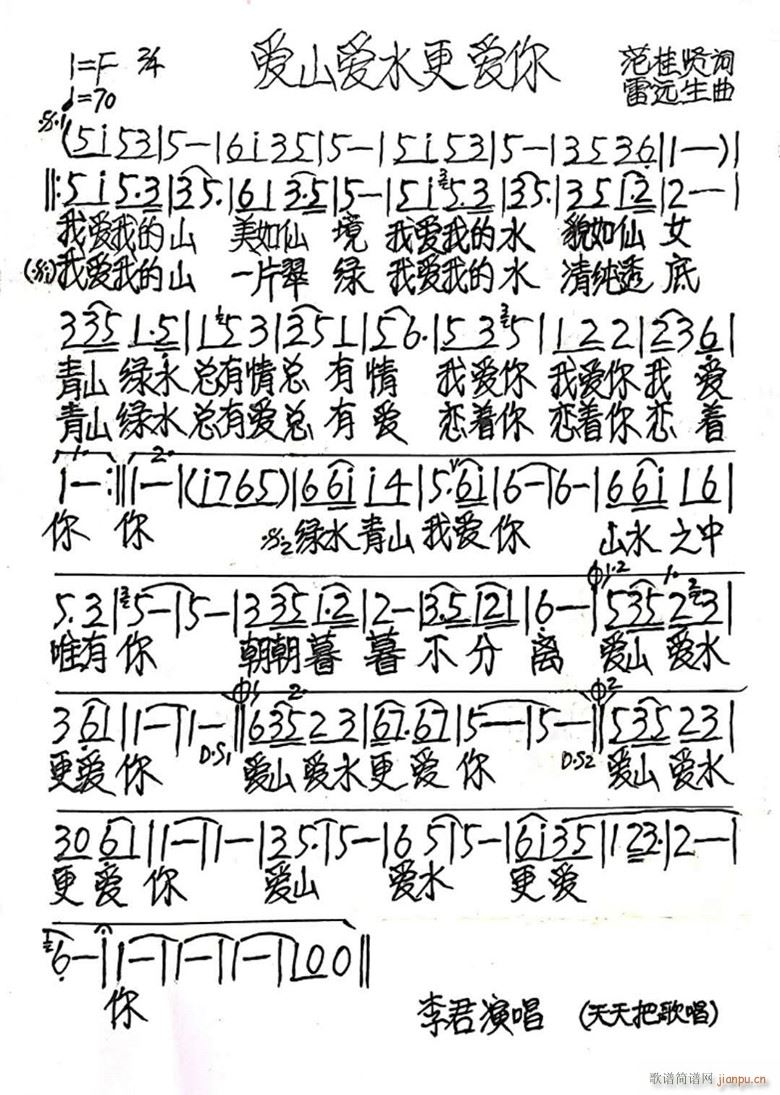 爱山爱水更爱你
1=F 2/4
♩=70
范桂贤词
雷远生曲
(5i53|5—|6i35|5—|5i53|5—|3536|1—)|
‖:5i5.3|35.|613.5|5—|5i5.3|35.|351.2|2—|
我爱我的山 美如仙境 我爱我的水 貌如仙女
我爱我的山 一片翠绿 我爱我的水 清纯透底
3351.5|153|351|56.|535|122|236|
青山绿水总有情总有情 我爱你我爱你我爱
青山绿水总有爱总有爱 恋着你恋着你恋着
1. 2.
1—:‖1—|(i765)|66ii4|5.6i|6—|6—|66i16|
你 你 绿水青山我爱你 山水之中
5.3|5—|5—|3351.2|2—|3.5121|6—|53523|
唯有你 朝朝暮暮不分离 爱山爱水
361|1—|1—‖63523|6767|5—|5—‖53523|
D.S1 D.S2
更爱你 爱山爱水更爱你 爱山爱水
3061|1—|1—|35.|5—|65|5—|6i35|123.|2—|
更爱你 爱山 爱水 更爱
6—|1—|1—|1—|100‖
你
李君演唱 (天天把歌唱)
歌谱简谱网 jianpu.cn